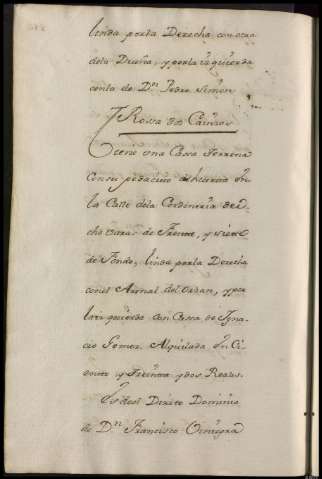 linda porla Derecha con otra
dela Dueña, y porla izquierda
conla de D.n Pedro Simon
Rosa de
Tiene una Casa Terrena
con su pedacito de huerto en
la Calle dela Cordoneria de o-
cho varas de Frente, y siete
de Fondo, linda porla Derecha
con el Arenal del, y por
la izquierda con Casa de Igna-
cio Gomez. Alquilada en Ci-
ento y Treinta y dos Reales.
Es del Directo Dominio
de D.n Francisco